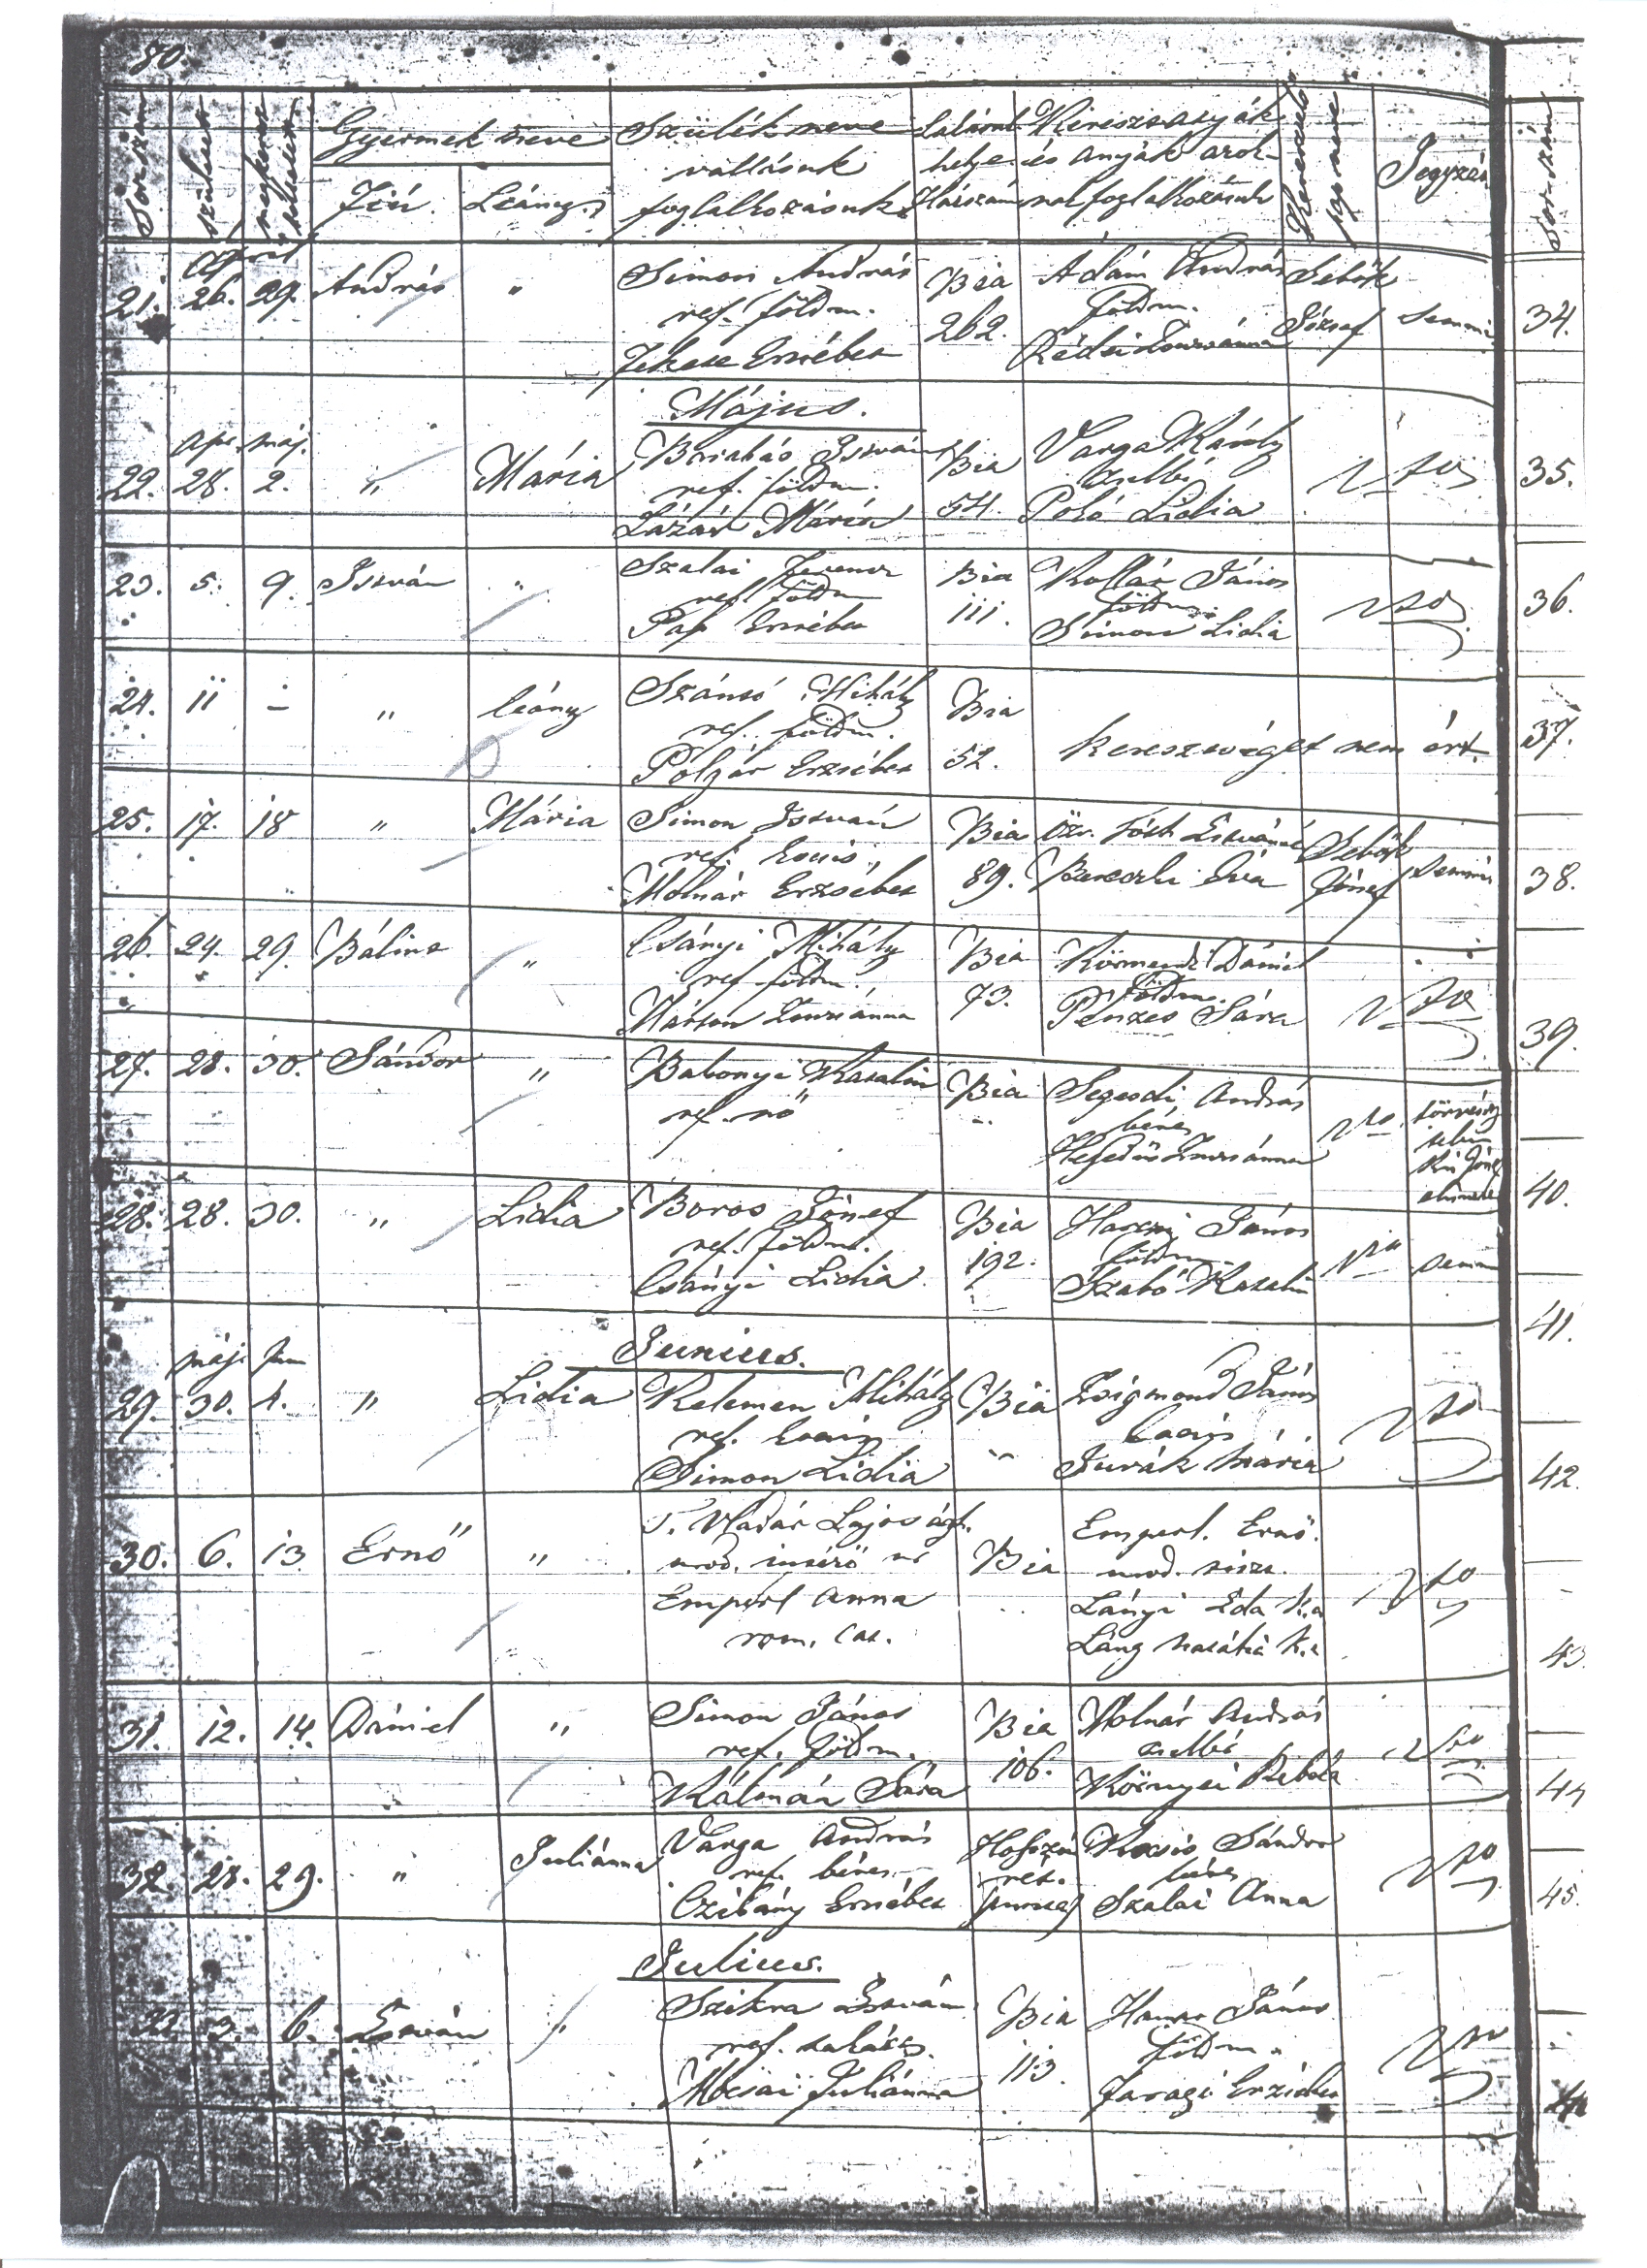 80.
Sorszám
született
Gyermek neve
Fiú.
Leány.
Szülék neve
vallásuk
foglalkozásuk
Lakásuk
helye
Házszám
Keresztatyák
és anyák azok-
nak foglalkozásuk
Keresztelő
pap neve
Jegyzés
Sorszám
April
21. 26. 29. András "
Simon András
ref. földm.
Fekete Erzsébet
Bia
262.
Ádám András
földm.
Rédei Zsuzsánna
Sebők
József
semmi
34.
Május.
apr. máj.
22. 28. 2. " Mária
Barabás István
ref. földm.
Lázár Mária
Bia
54.
Varga Károly
zsellér
Lidia
35.
23. 5. 9. István "
Szalai Ferencz
ref. földm
Pap Erzsébet
Bia
111.
Kollár János
földm.
Simon Lidia
36.
24. 11 - " leány
Szántó Mihály
ref. földm.
Polgár Erzsébet
Bia
52.
keresztséget nem ért.
37.
25. 17. 18 " Mária
Simon István
ref.
Molnár Erzsébet
Bia
89.
Özv. Tóth Istvánné
Éva
Sebők
József
semmi
38.
26. 24. 29. Bálint "
Csányi Mihály
ref földm.
Márton Zsuzsánna
Bia
73.
Körmendi Dániel
földm.
Pénzes Sára
39.
27. 28. 30. Sándor "
Babonyi Katalin
ref. nő
Bia
Segesdi András
béres
Hegedüs Zsuzsánna
törvény
telen
40.
28. 28. 30. " Lidia
Boros József
ref. földm.
Csányi Lidia
Bia
192.
János
földm
Szabó Katalin
semmi
41.
Junius.
máj. jun
29. 30. 1. " Lidia
Kelemen Mihály
ref.
Simon Lidia
Bia
"
Zsigmond János
Jurák Mária
42.
30. 6. 13. Ernő "
Madár Lajos
Emperl Anna
rom. cat.
Bia
Emperl Ernő.
urod. tiszt.
Lányi Eda k.a
Láng k.a
43.
31. 12. 14. Dániel "
Simon János
ref. földm.
Kálmán Sára
Bia
106.
Molnár András
zsellér
Környei Rebeka
44
32. 28. 29. " Juliánna
Varga András
ref. béres
Czibány Erzsébet
puszta
Kocsis Sándor
béres
Szalai Anna
45.
Julius.
33. 3. 6. István "
Szikra István
ref. takács.
Mocsai Juliánna
Bia
113.
János
földm.
Faragó Erzsébet